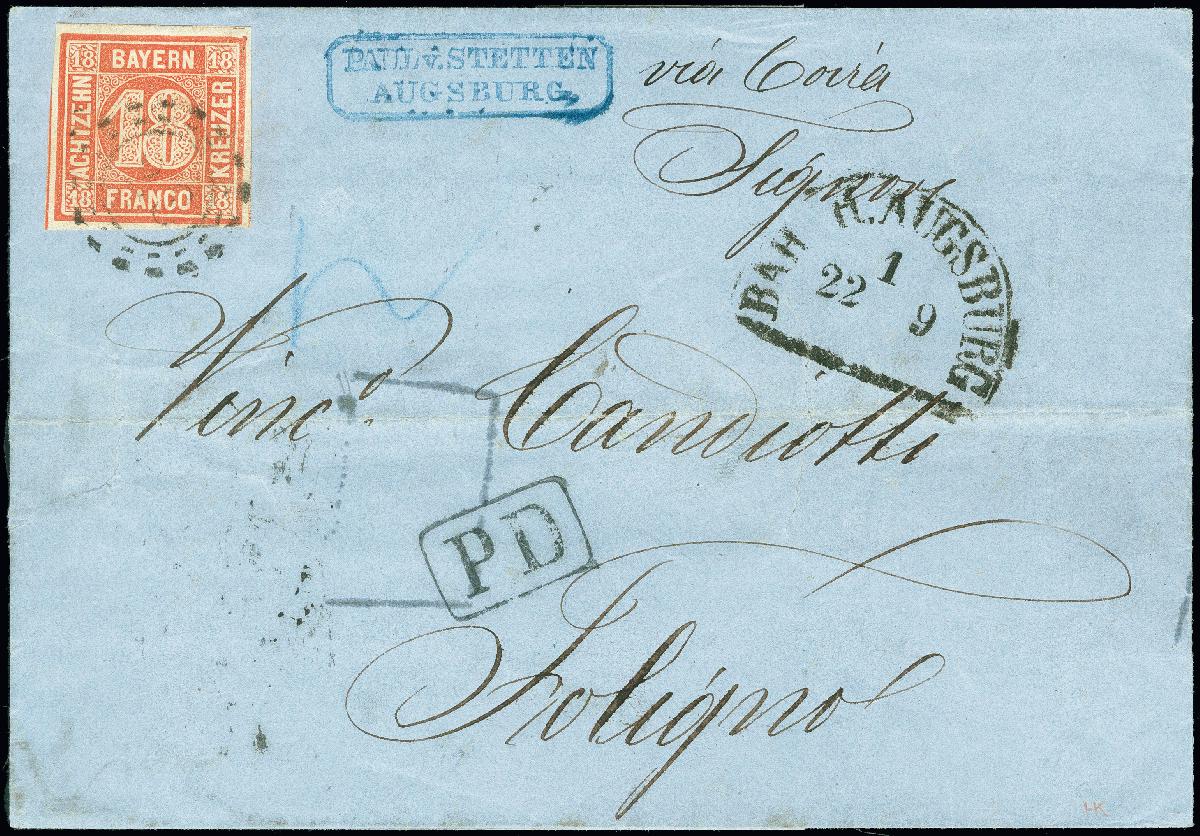 18 BAYERN 18
ACHTZEHN 18 KREUZER
18 FRANCO 18
PAUL v. STETTEN
AUGSBURG.
via Coira
Signor
BAH H. AUGSBURG
1
22 9
Vinc.º Candiotti
PD
Foligno
LK